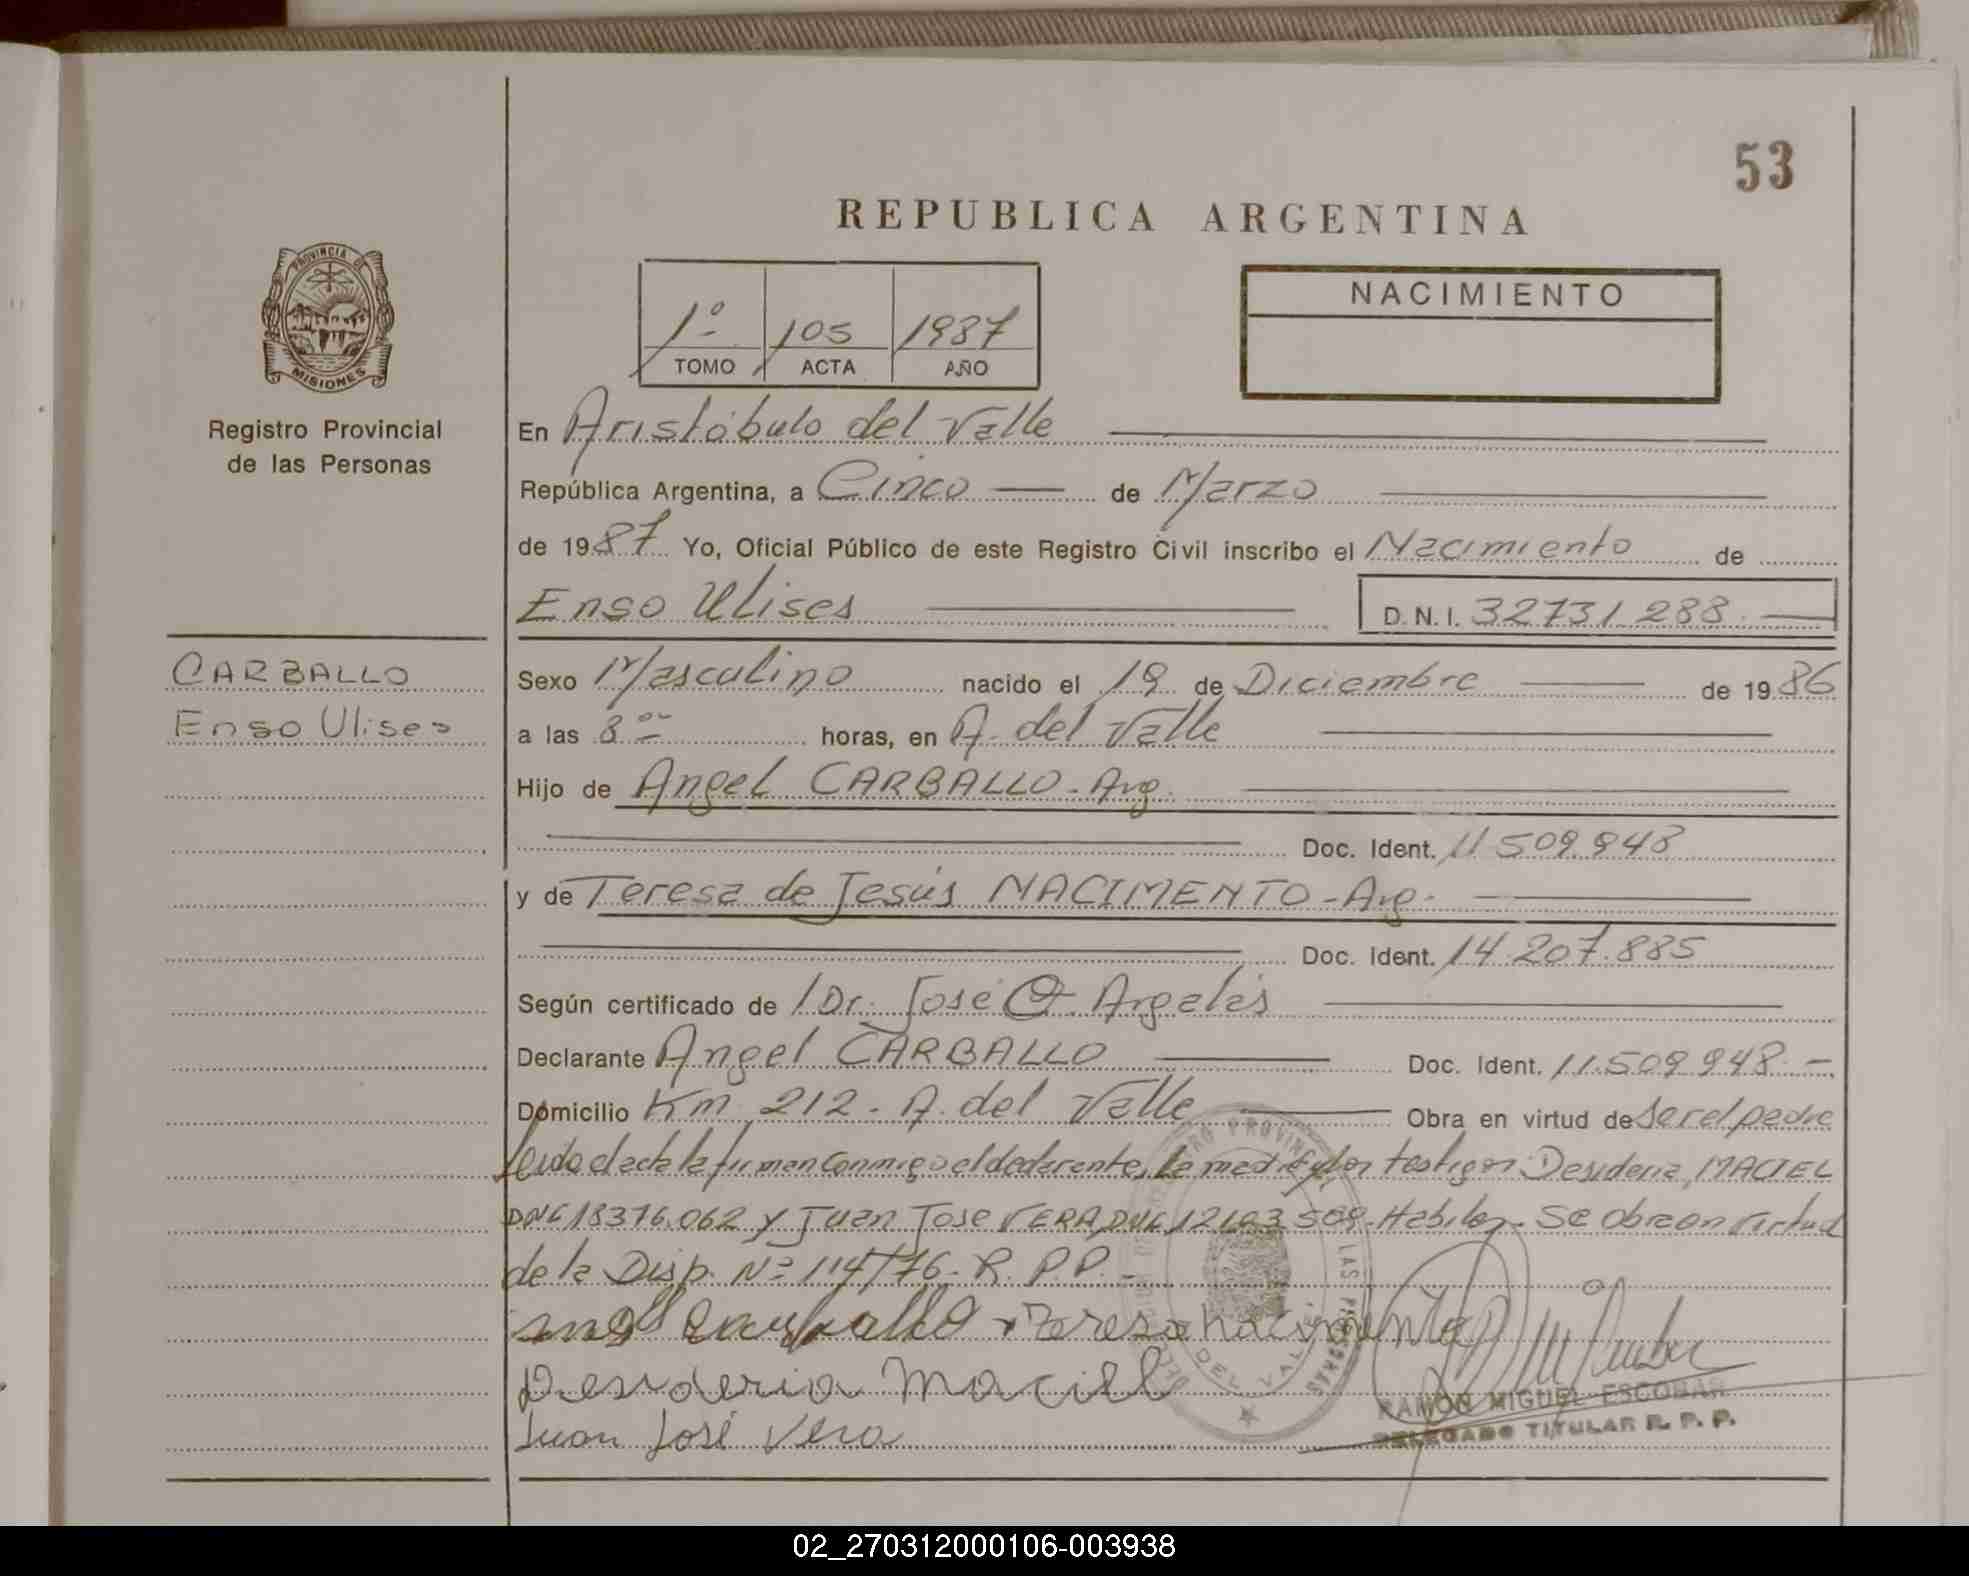 53
REPUBLICA ARGENTINA
PROVINCIA DE
MISIONES
Registro Provincial
de las Personas
1º 105 1987
TOMO ACTA AÑO
NACIMIENTO
En Aristóbulo del Valle
República Argentina, a Cinco de Marzo
de 1987 Yo, Oficial Público de este Registro Civil inscribo el Nacimiento de
Enso Ulises D. N. I. 32731288
CARBALLO
Enso Ulises
Sexo Masculino nacido el 19 de Diciembre de 1986
a las 8 horas, en A. del Valle
Hijo de Angel CARBALLO - Arg.
Doc. Ident. 11.509.948
y de Teresa de Jesús NACIMENTO - Arg.
Doc. Ident. 14.207.885
Según certificado de Dr. José O. Argalás
Declarante Angel CARBALLO Doc. Ident. 11.509.948 -
Domicilio Km 212 - A. del Valle Obra en virtud de ser el padre
Leida el acta la firman conmigo el declarante, la madre y los testigos: Desideria, MACIEL
DNI 18376.062 y Juan Jose VERA, DNI 509 - Habiles - Se obra en virtud
de la Disp. Nº 114/76 - R. P. P. -
Angel Carballo Teresa nacimento
Desideria Maciel
Juan José Vera
RAMON MIGUEL ESCOBAR
DELEGADO TITULAR R. P. P.
02_270312000106-003938